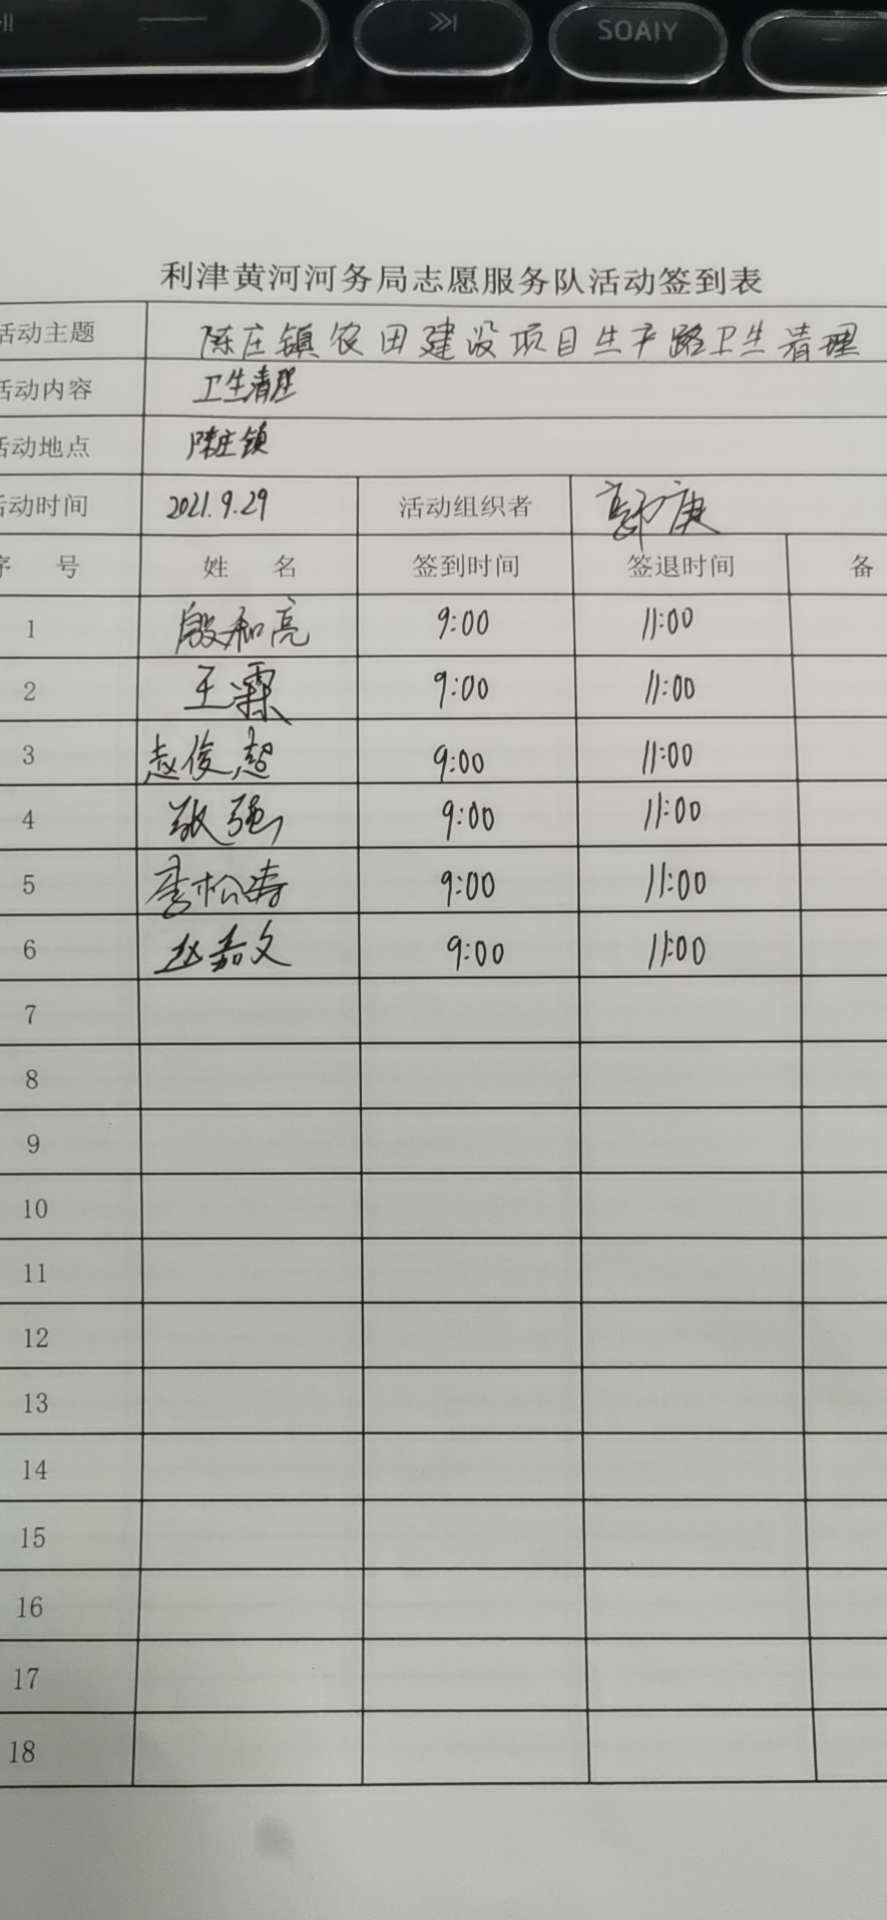 SOAIY
利津黄河河务局志愿服务队活动签到表
活动主题 陈庄镇农田建设项目生产路卫生清理
活动内容 卫生清理
活动地点 陈庄镇
活动时间 2021.9.29 活动组织者 郭庚
序 号 姓 名 签到时间 签退时间 备
1 殷和亮 9:00 11:00
2 王霖 9:00 11:00
3 赵俊超 9:00 11:00
4 强 9:00 11:00
5 李松涛 9:00 11:00
6 赵嘉文 9:00 11:00
7
8
9
10
11
12
13
14
15
16
17
18